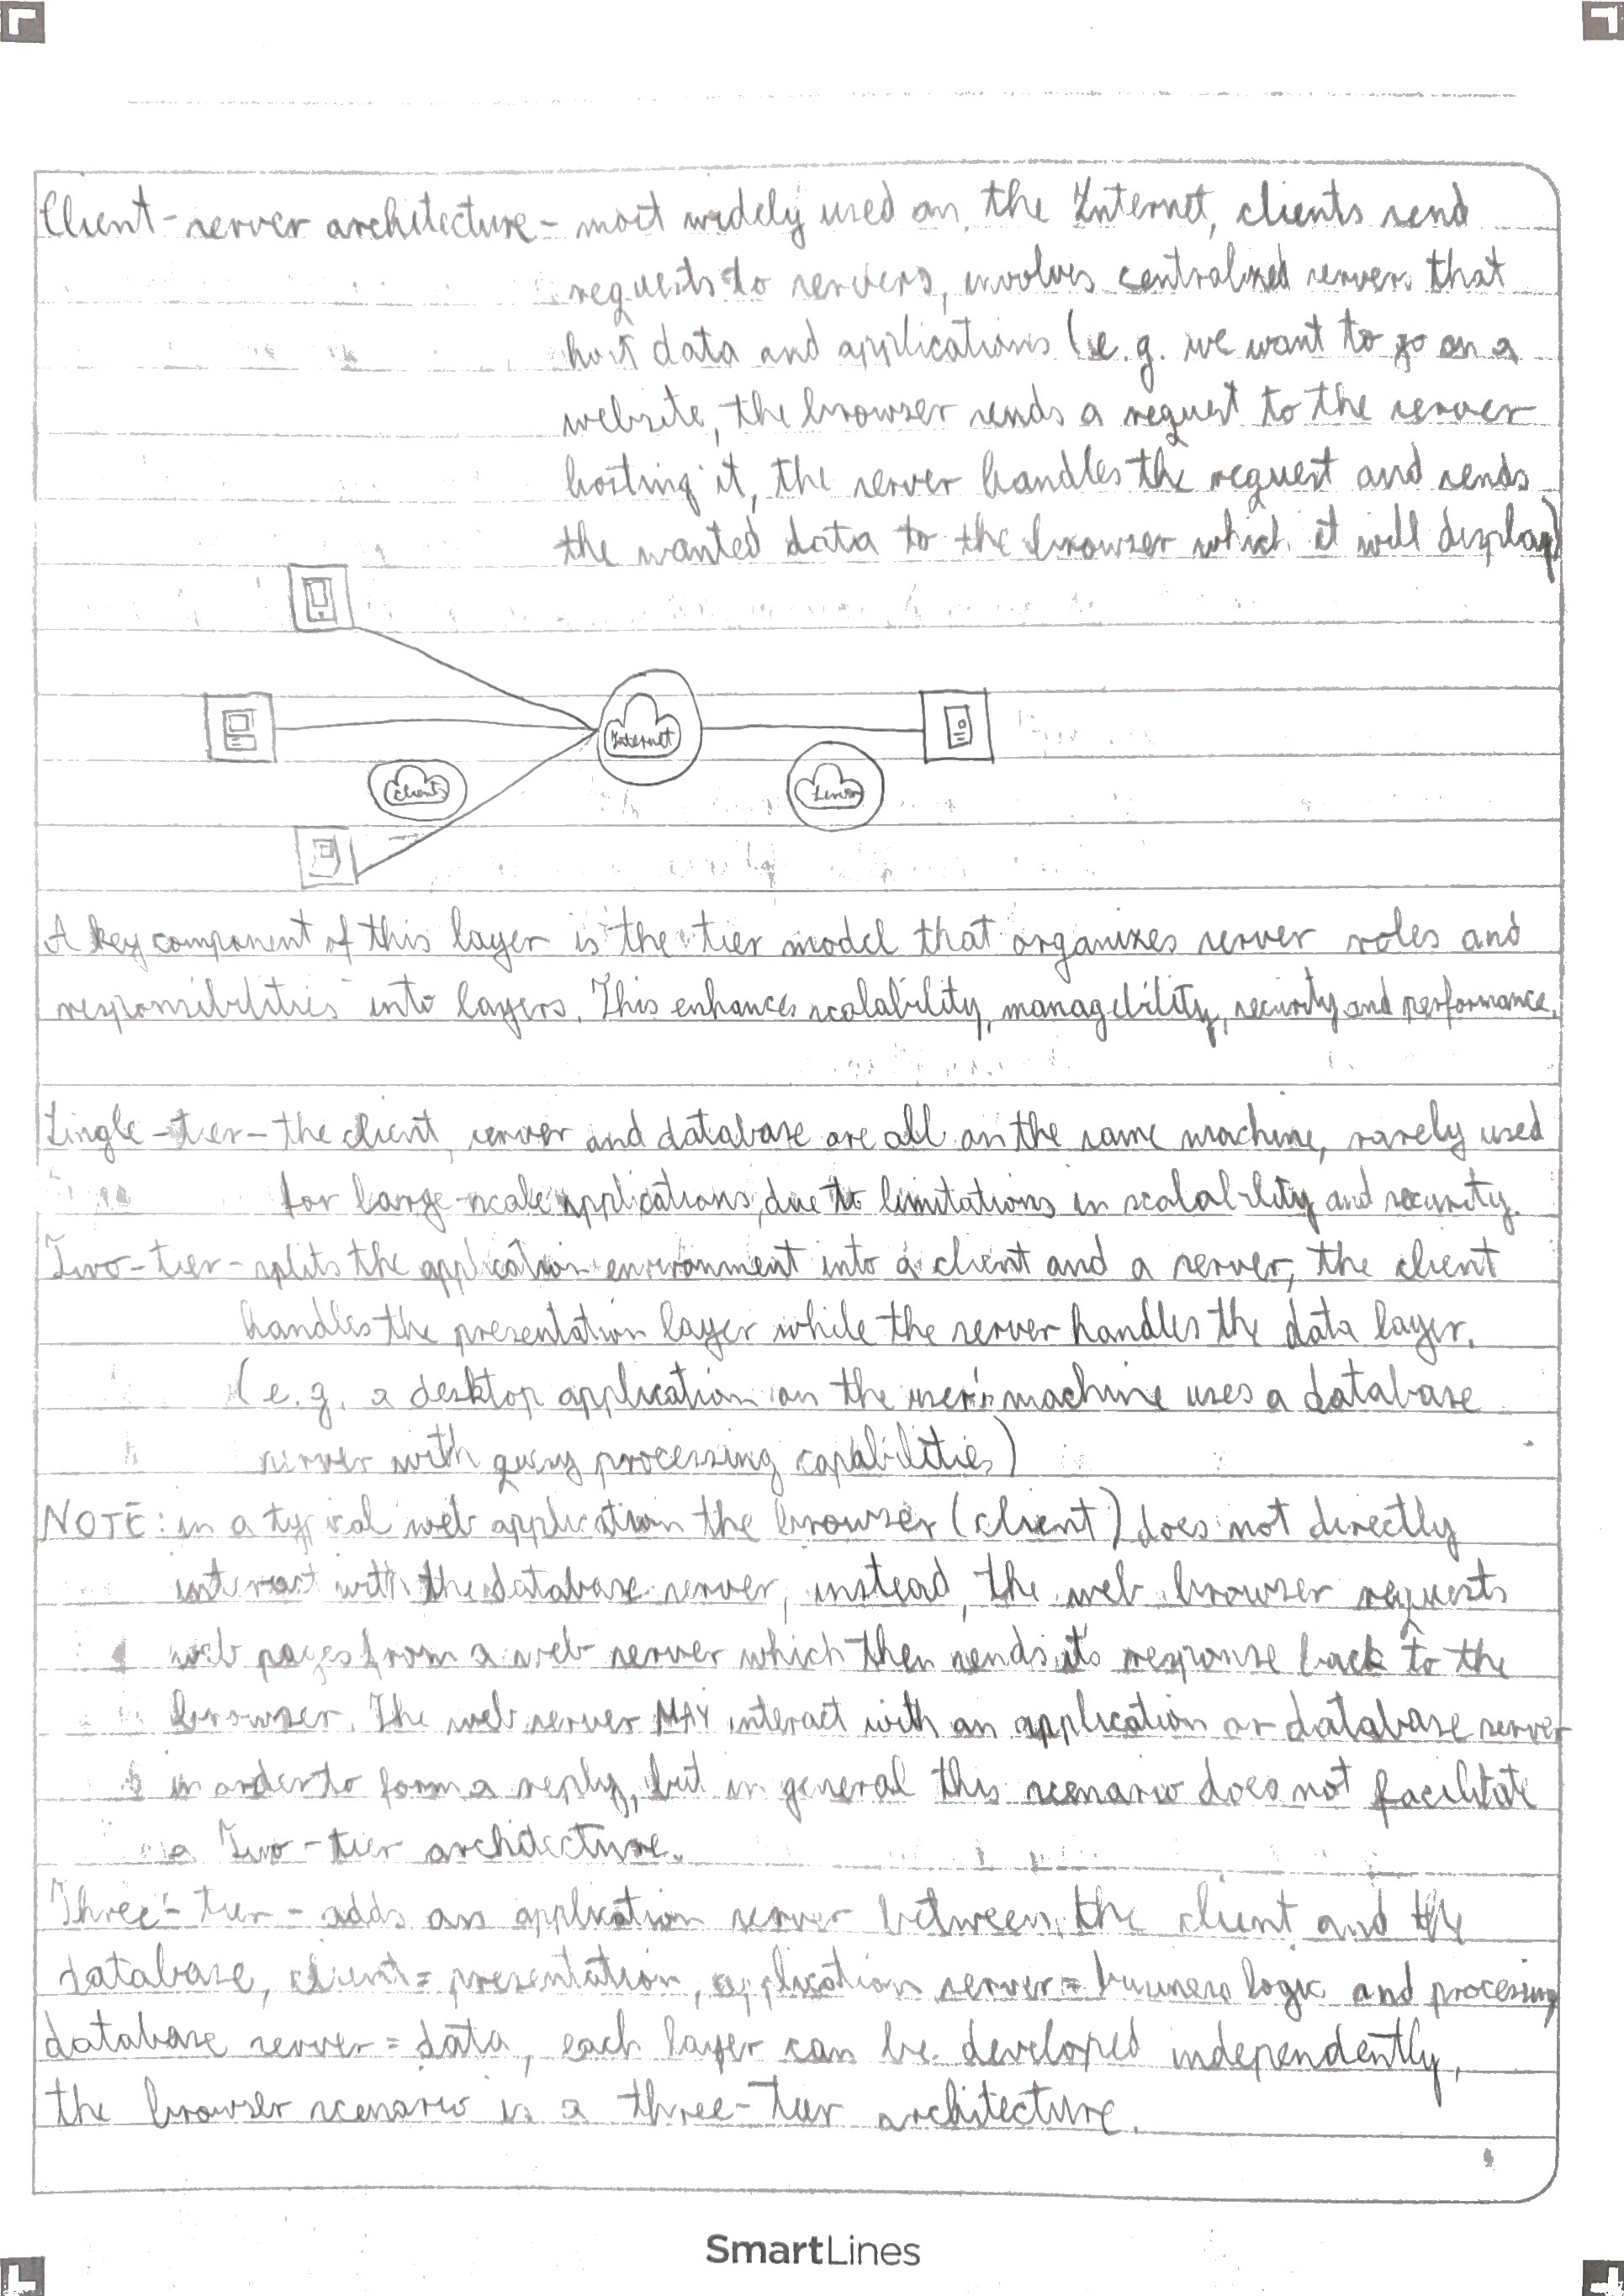 Client-server architecture - most widely used on the Internet, clients send
requests to servers, involves centralized servers that
host data and applications (e.g. we want to go on a
website, the browser sends a request to the server
hosting it, the server handles the request and sends
the wanted data to the browser which it will display)
Internet
Clients
Server
A key component of this layer is the tier model that organizes server roles and
responsibilities into layers. This enhances scalability, managebility, security and performance.
Single-tier - the client, server and database are all on the same machine, rarely used
for large-scale applications, due to limitations in scalability and security.
Two-tier - splits the application environment into a client and a server, the client
handles the presentation layer while the server handles the data layer.
(e.g. a desktop application on the user's machine uses a database
server with query processing capabilities)
NOTE: in a typical web application the browser (client) does not directly
interact with the database server, instead, the web browser requests
web pages from a web server which then sends its response back to the
browser. The web server MAY interact with an application or database server
in order to form a reply, but in general this scenario does not facilitate
a Two-tier architecture.
Three-tier - adds an application server between the client and the
database, client = presentation, application server = business logic and processing
database server = data, each layer can be developed independently,
the browser scenario is a three-tier architecture.
SmartLines